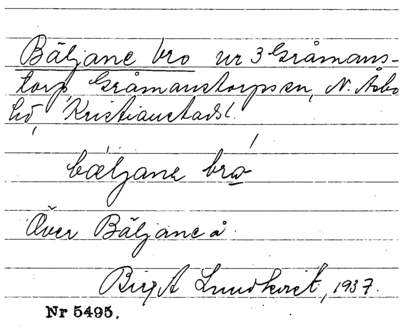 Bäljane bro nr 3 Gråmans-
torp, Gråmanstorps sn, N. Åsbo
hd, Kristianstads l.
bäljane bro
Över Bäljane å.
Birgit Lundkvist, 1937.
Nr 5495.